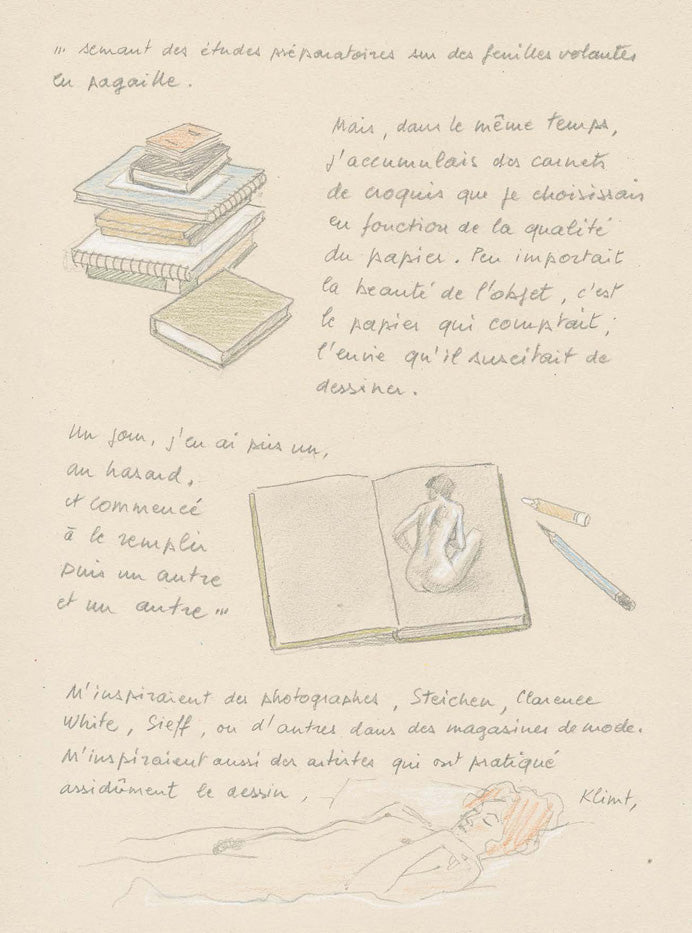 ... semant des études préparatoires sur des feuilles volantes
en pagaille.
Mais, dans le même temps,
j'accumulais des carnets
de croquis que je choisissais
en fonction de la qualité
du papier. Peu importait
la beauté de l'objet, c'est
le papier qui comptait ;
l'envie qu'il suscitait de
dessiner.
Un jour, j'en ai pris un,
au hasard,
et commencé
à le remplir
puis un autre
et un autre ...
M'inspiraient des photographes, Steichen, Clarence
White, Sieff, ou d'autres dans des magasines de mode.
M'inspiraient aussi des artistes qui ont pratiqué
assidûment le dessin, Klimt,